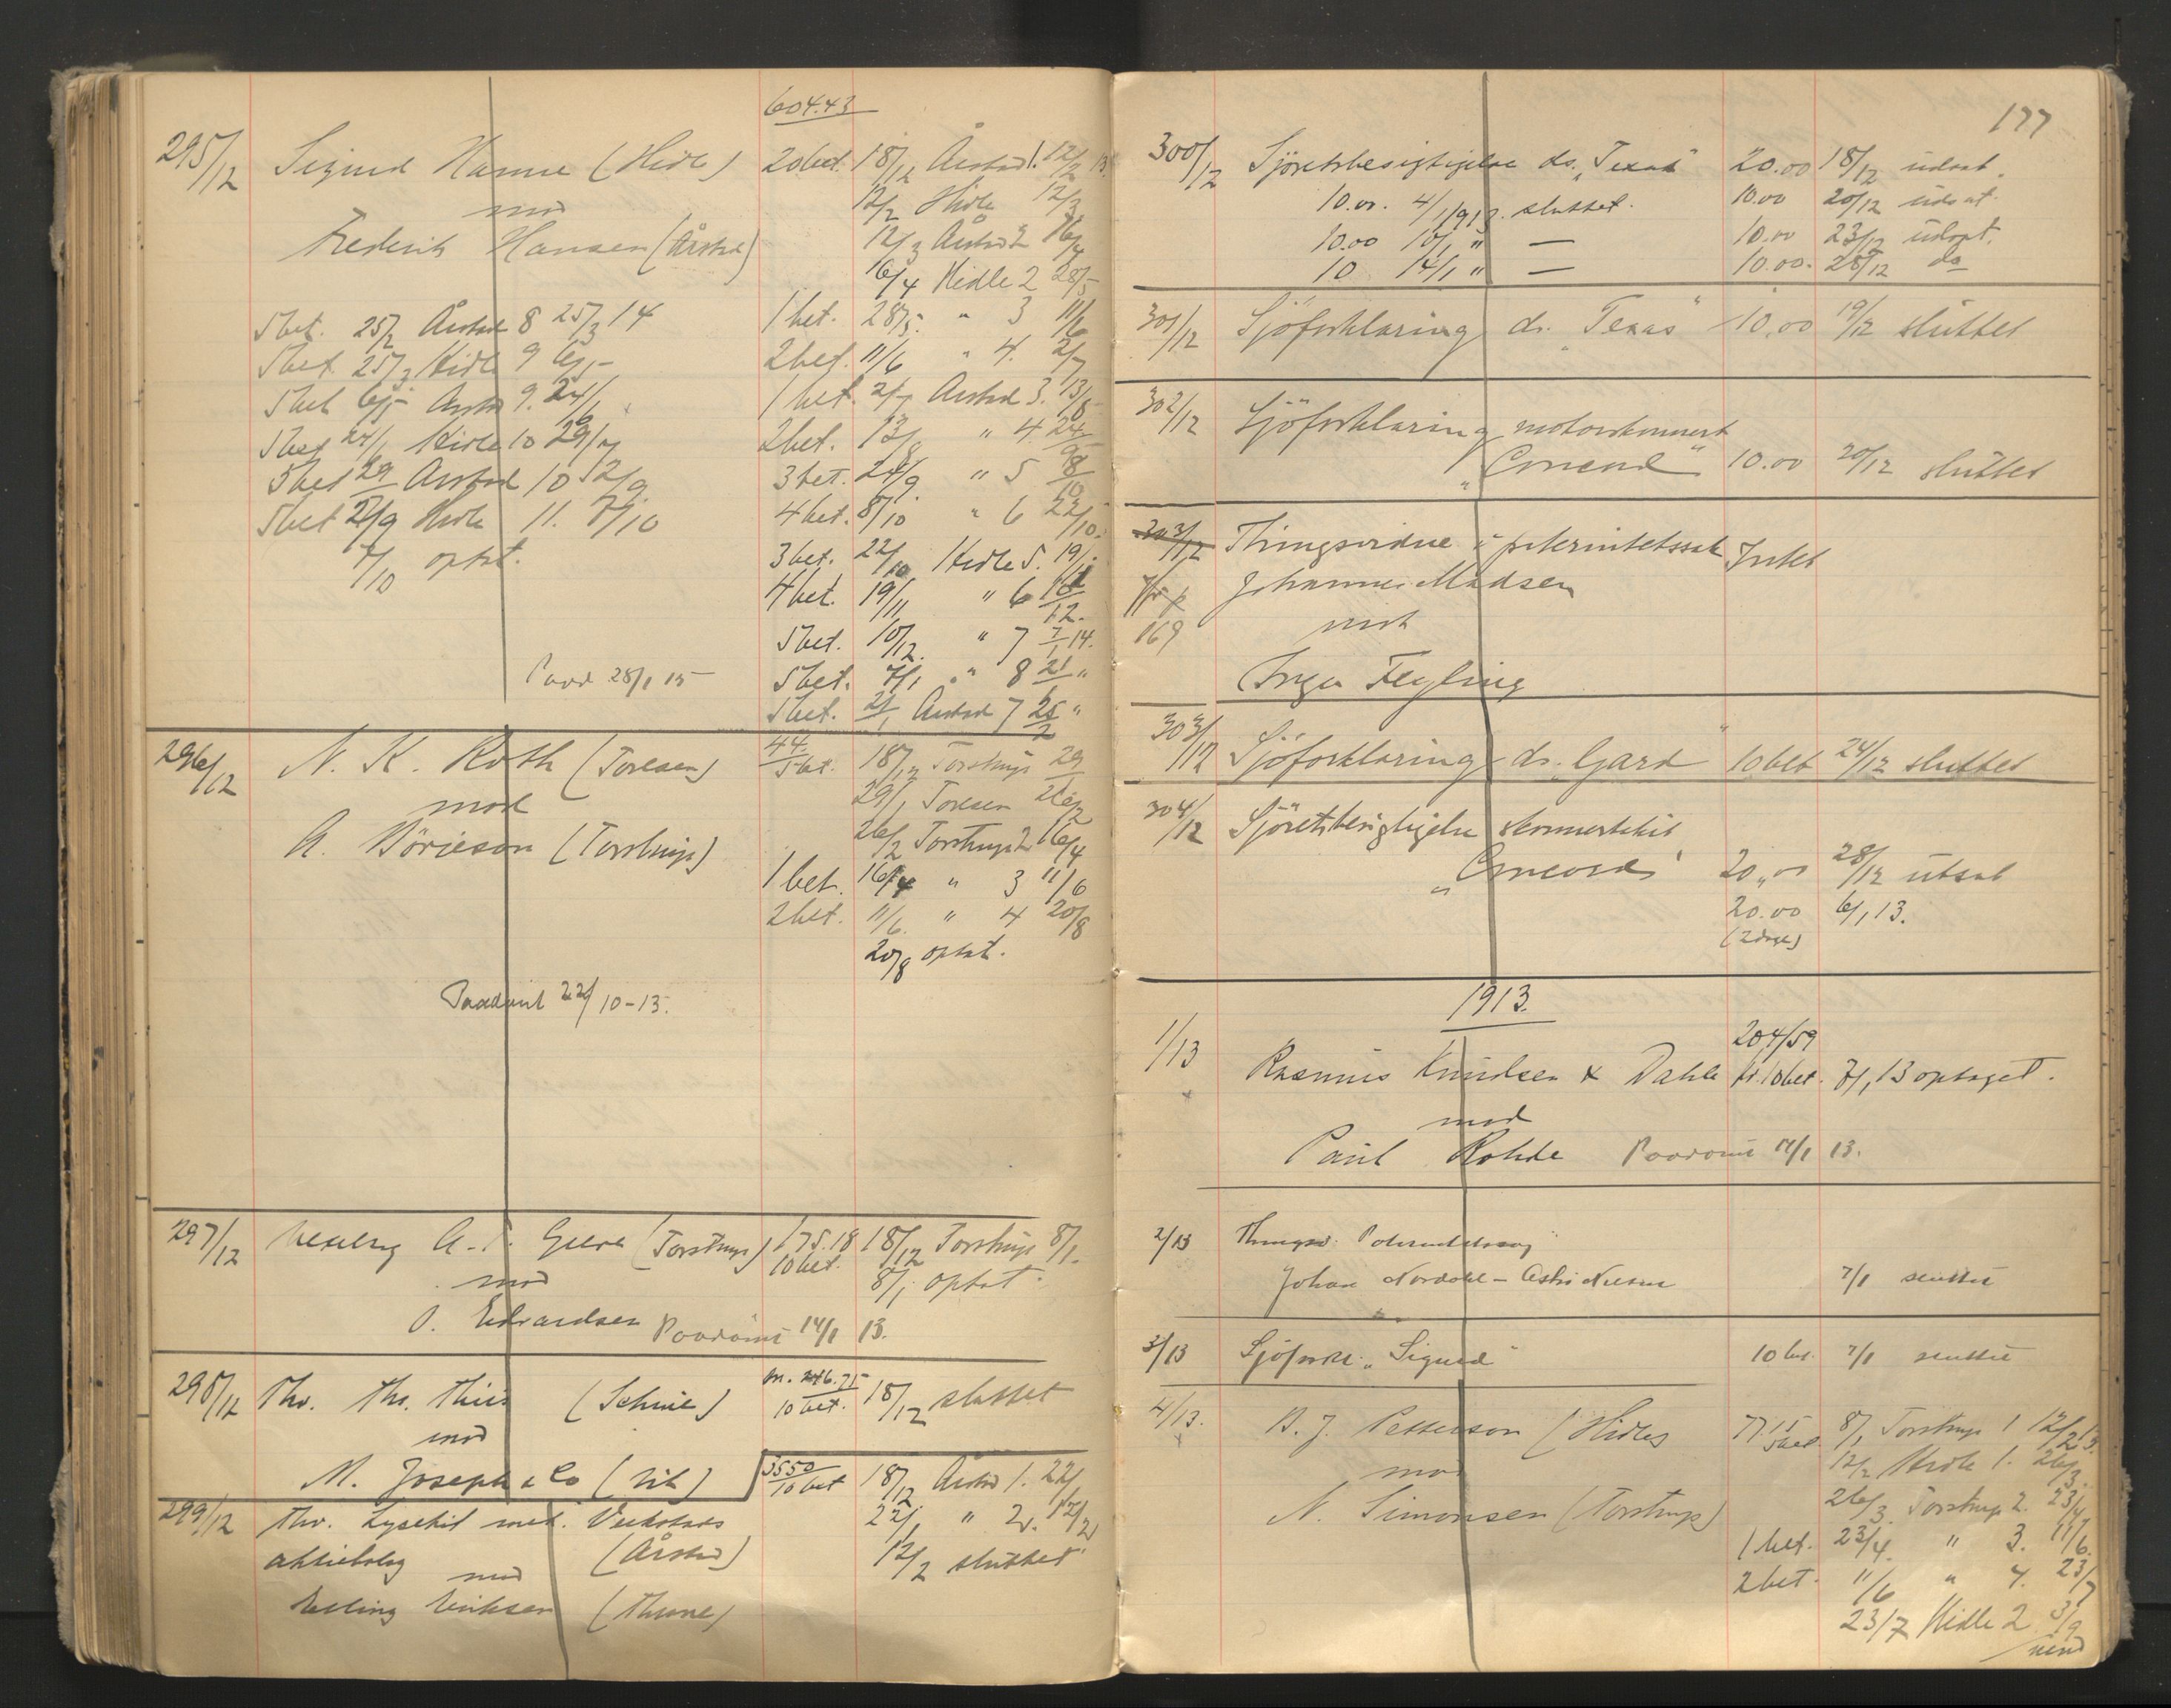 604.43
295/12 Sigurd Hanne (Hidle) 20 bet. 18/12 Årstad 1. 12/2 13.
mod 12/2 Hidle 12/3
Frederik Hansen (Årstad) 12/3 Årstad 2 16/4
16/4 Hidle 2 28/5
5 bet. 25/2 Årstad 8 25/3 14 1 bet. 28/5. " 3 11/6
5 bet. 25/3 Hidle 9 6/5 2 bet. 11/6 " 4. 2/7
5 bet 6/5 Årstad 9. 24/6 1 bet. 2/7 Årstad 3. 13/8
5 bet 24/6 Hidle 10 29/7 2 bet. 13/8 " 4. 24/9
5 bet 29/7 Årstad 10 2/9 3 bet. 24/9. " 5 8/10
5 bet 2/9 Hidle 11. 7/10 4 bet. 8/10 " 6 22/10.
7/10 optat. 3 bet. 22/10 Hidle 5. 19/11
4 bet. 19/11 " 6 10/12.
5 bet. 10/12. " 7 7/1 14.
Paad 28/1 15 5 bet. 7/1 " 8 21/1 "
5 bet. 21/1 Årstad 7 25/2 "
296/12 N. K. Roth (Toresen) 44./5 bet. 18/12 Torstrup 29/1
mod 29/1 Toresen 26/2
A. Börieson (Torstrup) 26/2 Torstrup 2 16/4
1 bet. 16/4 " 3 11/6
2 bet. 11/6. " 4 20/8
20/8 optat.
Paadömt 22/10-13.
297/12 A. T. Geere (Torstrup) 175.18 18/12 Torstrup 8/1.
mod 10 bet. 8/1. optat.
O. Edvardsen Paadömt 14/1 13.
298/12 Thv. Ths. Thiis (Schie) m. 246.75 18/12 sluttet
mod 10 bet.
M. Joseph & Co (Vik) 3550/10 bet 18/12 Årstad 1. 22/1
299/12 Thv. Lysekil mek. Verkstads 22/1 " 2. 12/2
aktiebolag (Årstad) 12/2 sluttet
mod
Eriksen (Thune)
177
300/12 Sjöretsbesigtigelse ds. "Texas" 20.00 18/12 udsat.
10.00. 4/1 1913. sluttet. 10.00 20/12 udsat.
10.00 10/1 " — 10.00 23/12 udsat.
10 14/1 " — 10.00. 28/12 do
301/12 Sjöforklaring ds. "Texas" 10.00 19/12 sluttet
302/12 Sjöforklaring motorskonnert
"Concord" 10.00 20/12 sluttet
303/12 Thingsvidne i paternitetssak Intet
Johannes Madsen
169 mot
Inga Flegling
303/12 Sjöforklaring ds. "Gard" 10 bet 24/12 sluttet
304/12 Sjöretsbesigtigelse skonnertskib
"Concord" 20.00 28/12 utsat
20.00 6/1 13.
(2 dage)
1913.
204/59
1/13 Rasmus Knudsen & Dahle kr. 10 bet. 7/1 13 optaget.
mod
Paul Rohde Paadömt 14/1 13.
2/13 Thingsv. Paternitetssag
Johan Nordahl – Astri Nilsen 7/1 sluttet
3/13 Sjöforkl. "Sigurd" 10 bet. 7/1 sluttet
4/13. B. J. Petterson (Hidle) 77.15 8/1 Torstrup 1 12/2 13.
mod 5 bet. 12/2 Hidle 1. 26/3.
N. Simonsen (Torstrup) 26/3. Torstrup 2. 23/4
1 bet. 23/4. " 3. 11/6.
2 bet. 11/6 " 4. 23/7
23/7 Hidle 2 3/9
vend